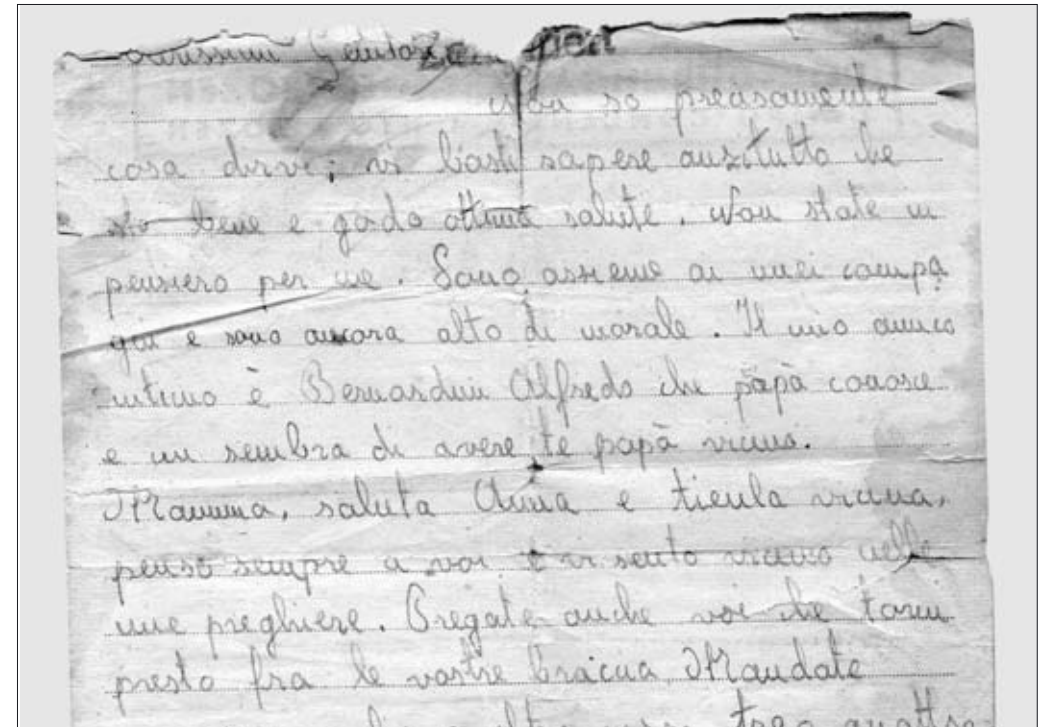 Carissimi Genitori
Non so precisamente
cosa dirvi; vi basti sapere anzitutto che
sto bene e godo ottima salute. Non state in
pensiero per me. Sono assieme ai miei compa
gni e sono ancora alto di morale. Il mio amico
intimo è Bernardini Alfredo che papà conosce
e mi sembra di avere te papà vicino.
Mamma, saluta Anna e tienla vicina,
penso sempre a voi e vi sento vicino nelle
mie preghiere. Pregate anche voi che torni
presto fra le vostre braccia Mandate